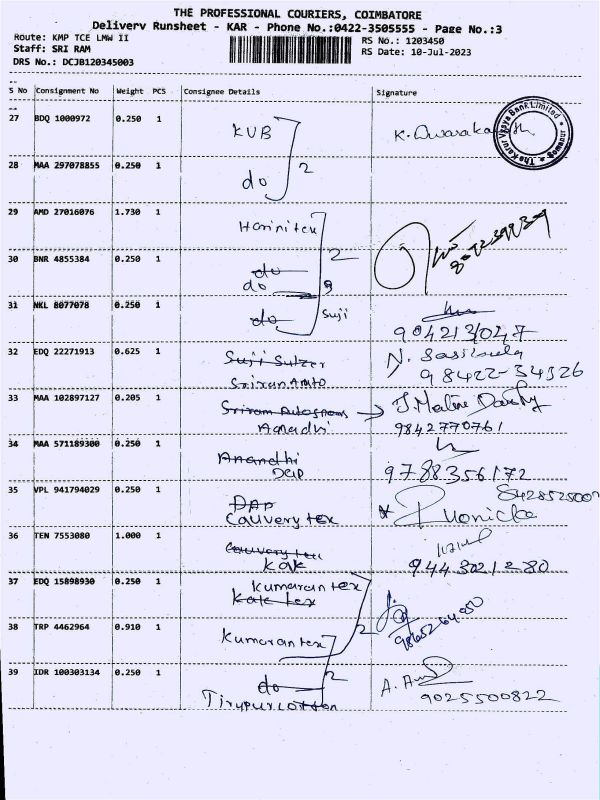 THE PROFESSIONAL COURIERS, COIMBATORE
Delivery Runsheet - KAR - Phone No.:0422-3505555 - Page No.:3
Route: KMP TCE LMW II
RS No.: 1203450
Staff: SRI RAM
RS Date: 10-Jul-2023
DRS No.: DCJB120345003
S No Consignment No Weight PCS Consignee Details Signature
27 BDQ 1000972 0.250 1 KVB
The Karur Vysya Bank Limited
28 MAA 297078855 0.250 1 do 2
29 AMD 27016076 1.730 1 Harinitex
30 BNR 4855384 0.250 1 do 2
do 3
31 NKL 8077078 0.250 1 do Suji
9042131047
32 EDQ 22271913 0.625 1 Suji Sulzer N. Sasikala
Sriram Auto 98422-34326
33 MAA 102897127 0.205 1 Sriram Autogroms
Anandhi 9842770761
34 MAA 571189300 0.250 1 Anandhi
DAP 9788356172
35 VPL 941794029 0.250 1 DAP
Cauvery tex Monicka
36 TEN 7553080 1.000 1 Cauvery tex
KAK 9443021280
37 EDQ 15898930 0.250 1 Kumaran tex
Kak tex
38 TRP 4462964 0.910 1 Kumaran tex 2
39 IDR 100303134 0.250 1 do 2
Tirupur Cotton 9025500822